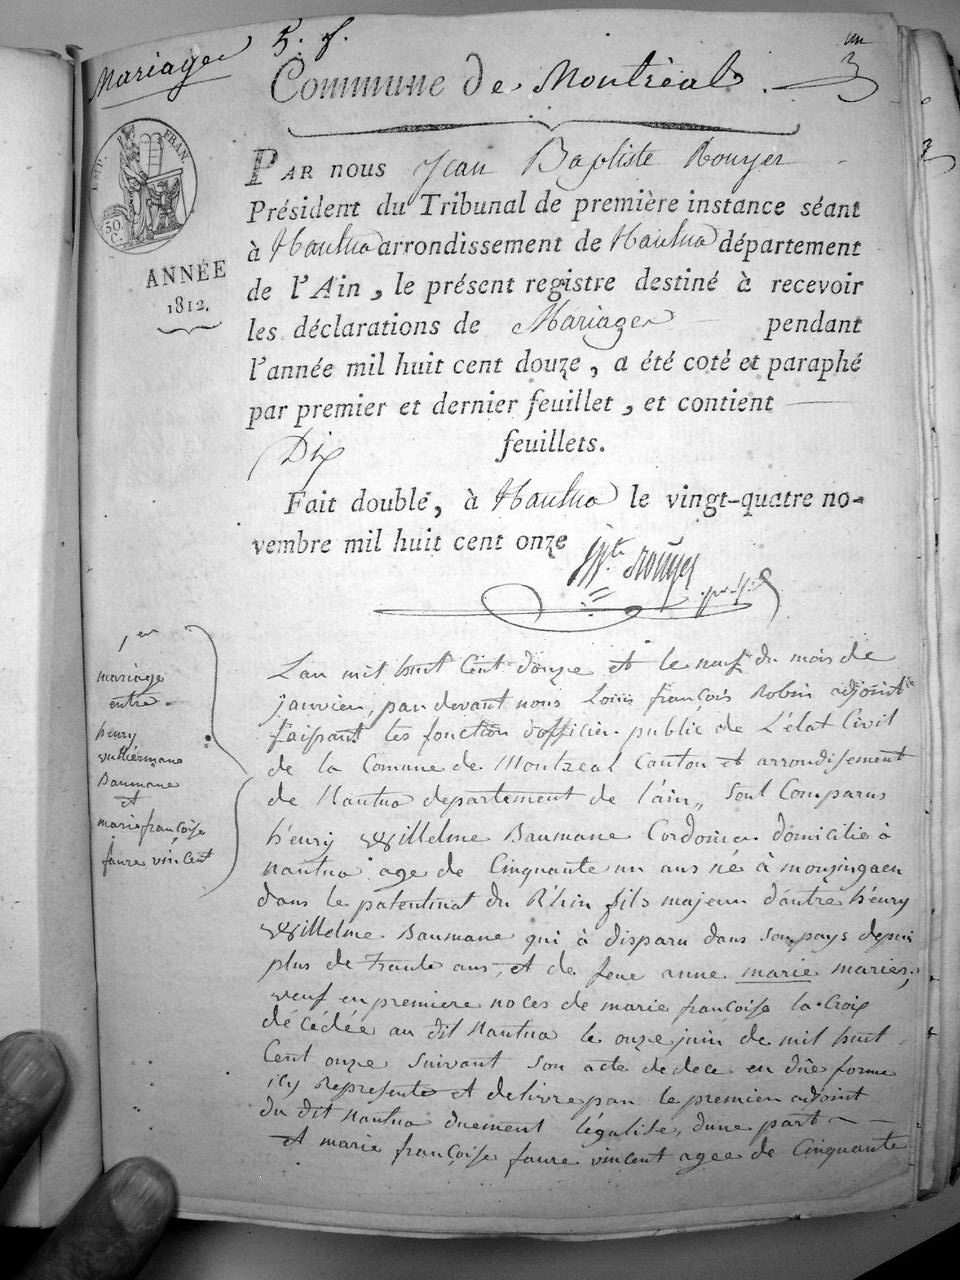 Mariages 5. f.
Commune de Montréal.
3
EMP. FRAN.
50. C.
ANNÉE
1812.
PAR NOUS Jean Baptiste Rouyer
Président du Tribunal de première instance séant
à Nantua arrondissement de Nantua département
de l'Ain, le présent registre destiné à recevoir
les déclarations de Mariages pendant
l'année mil huit cent douze, a été coté et paraphé
par premier et dernier feuillet, et contient
Dix feuillets.
Fait double, à Nantua le vingt-quatre no-
vembre mil huit cent onze
Rouyer
1er
mariage
entre
henry
vuillermane
Baumane
et
marie françoise
faure vincent
L'an mil huit Cent douze et le neuf du mois de
janvier, par devant nous Louis françois Robin adjoint
faisant les fonction d'officier public de L'état Civil
de la Comune de Montreal Canton et arrondisement
de Nantua departement de l'ain, sont Comparus
henry Willelme Baumane Cordonier domicilié à
nantua age de Cinquante un ans né à monzingaen
dans le patentinat du Rhin fils majeur d'autre henry
Willelme Baumane qui à disparu dans son pays depuis
plus de trante ans, et de feue anne marie maries,
veuf en premiere noces de marie françoise la Croix
décédée au dit Nantua le onze juin de mil huit
Cent onze suivant son acte de dece en due forme
icy represente et delivre par le premier adjoint
du dit Nantua duement légalise, d'une part
et marie françoise faure vincent agee de Cinquante